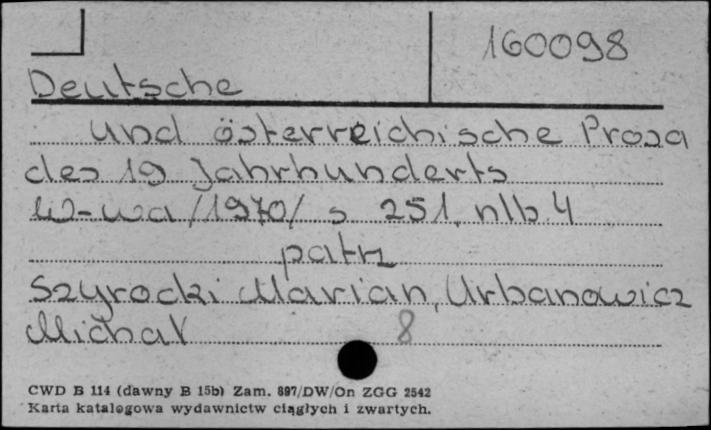 160098
Deutsche
und österreichische Prosa
des 19 Jahrhunderts
W-wa /1970/ s 251, nlb. 4
patrz
Szyrocki Marian, Urbanowicz
Michał 8
CWD B 114 (dawny B 15b) Zam. 897/DW/On ZGG 2542
Karta katalogowa wydawnictw ciągłych i zwartych.